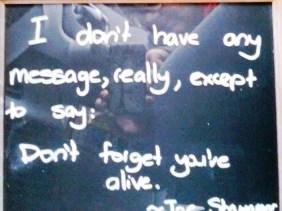 I don't have any
message, really, except
to say:
Don't forget you're
alive.
~ Joe Strummer